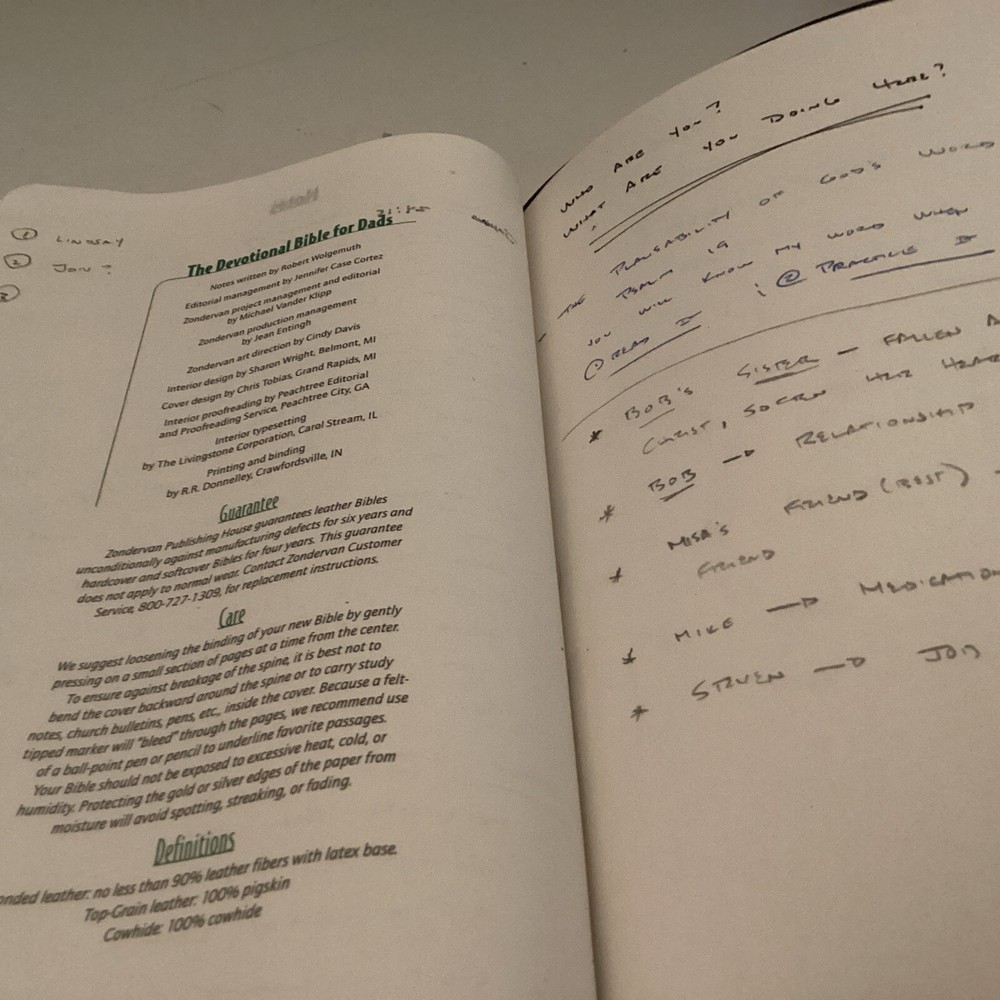 ① LINDSAY
② JON ?
③
The Devotional Bible for Dads
Notes written by Robert Wolgemuth
Editorial management by Jennifer Case Cortez
Zondervan project management and editorial
by Michael Vander Klipp
Zondervan production management
by Jean Entingh
Zondervan art direction by Cindy Davis
Interior design by Sharon Wright, Belmont, MI
Cover design by Chris Tobias, Grand Rapids, MI
Interior proofreading by Peachtree Editorial
and Proofreading Service, Peachtree City, GA
Interior typesetting
by The Livingstone Corporation, Carol Stream, IL
Printing and binding
by R.R. Donnelley, Crawfordsville, IN
Guarantee
Zondervan Publishing House guarantees leather Bibles
unconditionally against manufacturing defects for six years and
hardcover and softcover Bibles for four years. This guarantee
does not apply to normal wear. Contact Zondervan Customer
Service, 800-727-1309, for replacement instructions.
Care
We suggest loosening the binding of your new Bible by gently
pressing on a small section of pages at a time from the center.
To ensure against breakage of the spine, it is best not to
bend the cover backward around the spine or to carry study
notes, church bulletins, pens, etc., inside the cover. Because a felt-
tipped marker will "bleed" through the pages, we recommend use
of a ball-point pen or pencil to underline favorite passages.
Your Bible should not be exposed to excessive heat, cold, or
humidity. Protecting the gold or silver edges of the paper from
moisture will avoid spotting, streaking, or fading.
Definitions
onded leather: no less than 90% leather fibers with latex base.
Top-Grain leather: 100% pigskin
Cowhide: 100% cowhide
WHO ARE YOU?
WHAT ARE YOU DOING HERE?
OF GOD'S WORD
THE PSALM 19
YOU WILL KNOW MY WORD WHEN
① READ IT ; ② PRACTICE IT
* BOB'S SISTER - FALLEN A
CHRIST, SOFTEN HER HEAR
* BOB → RELATIONSHIP
* MISA'S FRIEND (BEST) -
FRIEND
* MIKE → MEDICATION
* STEVEN → JOB